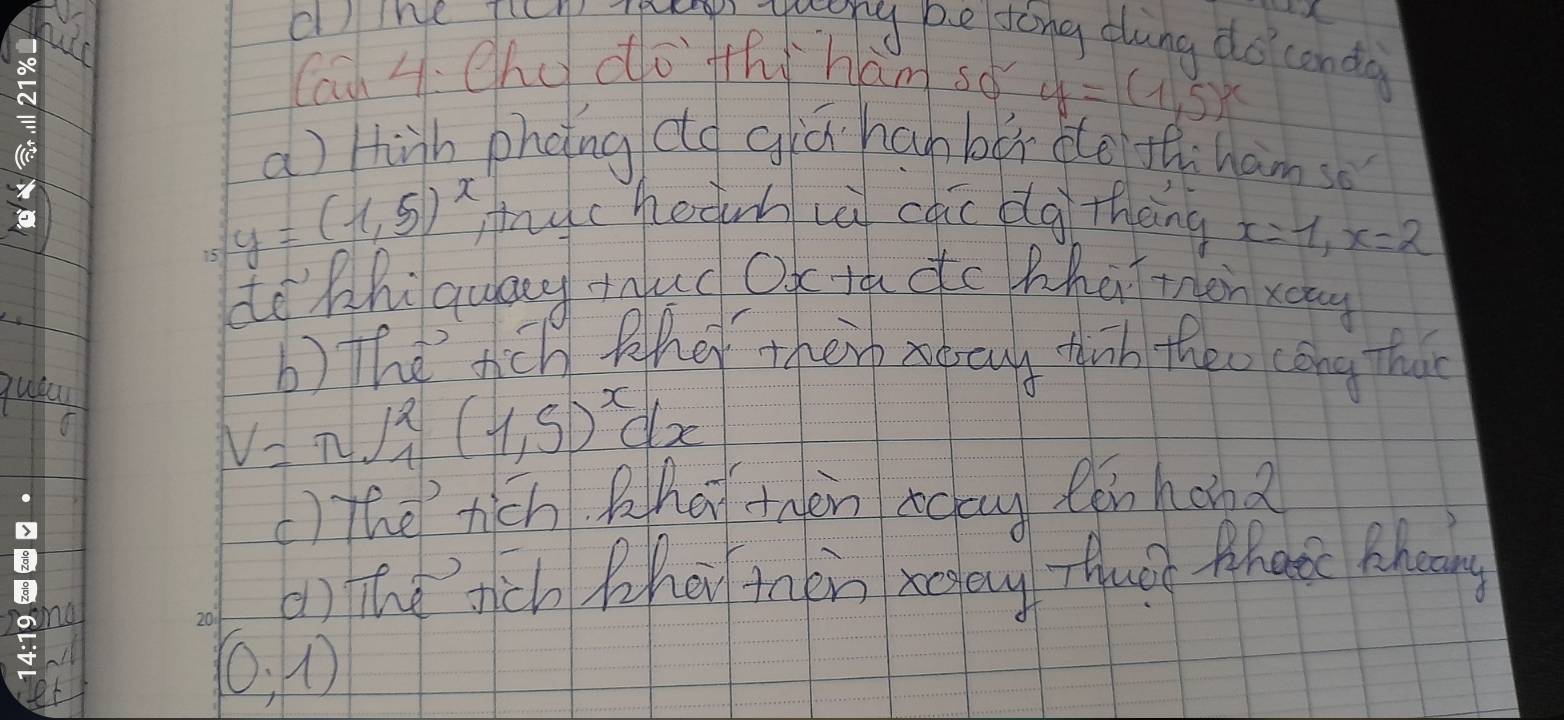 bê tông dùng đổ con đg
Câu 4. Cho đồ thị hàm số y = (1,5)^x
a) Hình phẳng đc giới hạn bởi đồ thị hàm số
y = (1,5)^x, trục hoành và các đg thẳng x=1, x=2
đó khi quay trục Ox ta đc khối tròn xoay
b) Thể tích khối tròn xoay tính theo công thức
V = π∫₁² (1,5)^x dx
c) Thể tích khối tròn xoay lớn hơn 2
d) Thể tích khối tròn xoay thuộc khoảng
(0;1)
quay
14:19 Zalo Zalo
21%
15
20